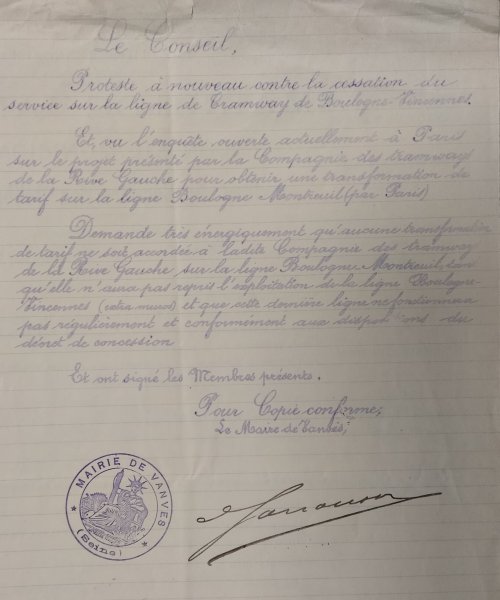 Le Conseil,
Proteste à nouveau contre la cessation du
service sur la ligne de Tramway de Boulogne-Vincennes.
Et, vu l'enquête ouverte actuellement à Paris
sur le projet présenté par la Compagnie des tramways
de la Rive Gauche pour obtenir une transformation de
tarif sur la ligne Boulogne Montreuil (par Paris)
Demande très énergiquement qu'aucune transformation
de tarif ne soit accordée à ladite Compagnie des tramways
de la Rive Gauche, sur la ligne Boulogne-Montreuil, tant
qu'elle n'aura pas repris l'exploitation de la ligne Boulogne-
Vincennes (extra muros) et que cette dernière ligne ne fonctionnera
pas régulièrement et conformément aux dispositions du
décret de concession
Et ont signé les Membres présents.
Pour Copie conforme;
Le Maire de Vanves,
MAIRIE DE VANVES
(Seine)